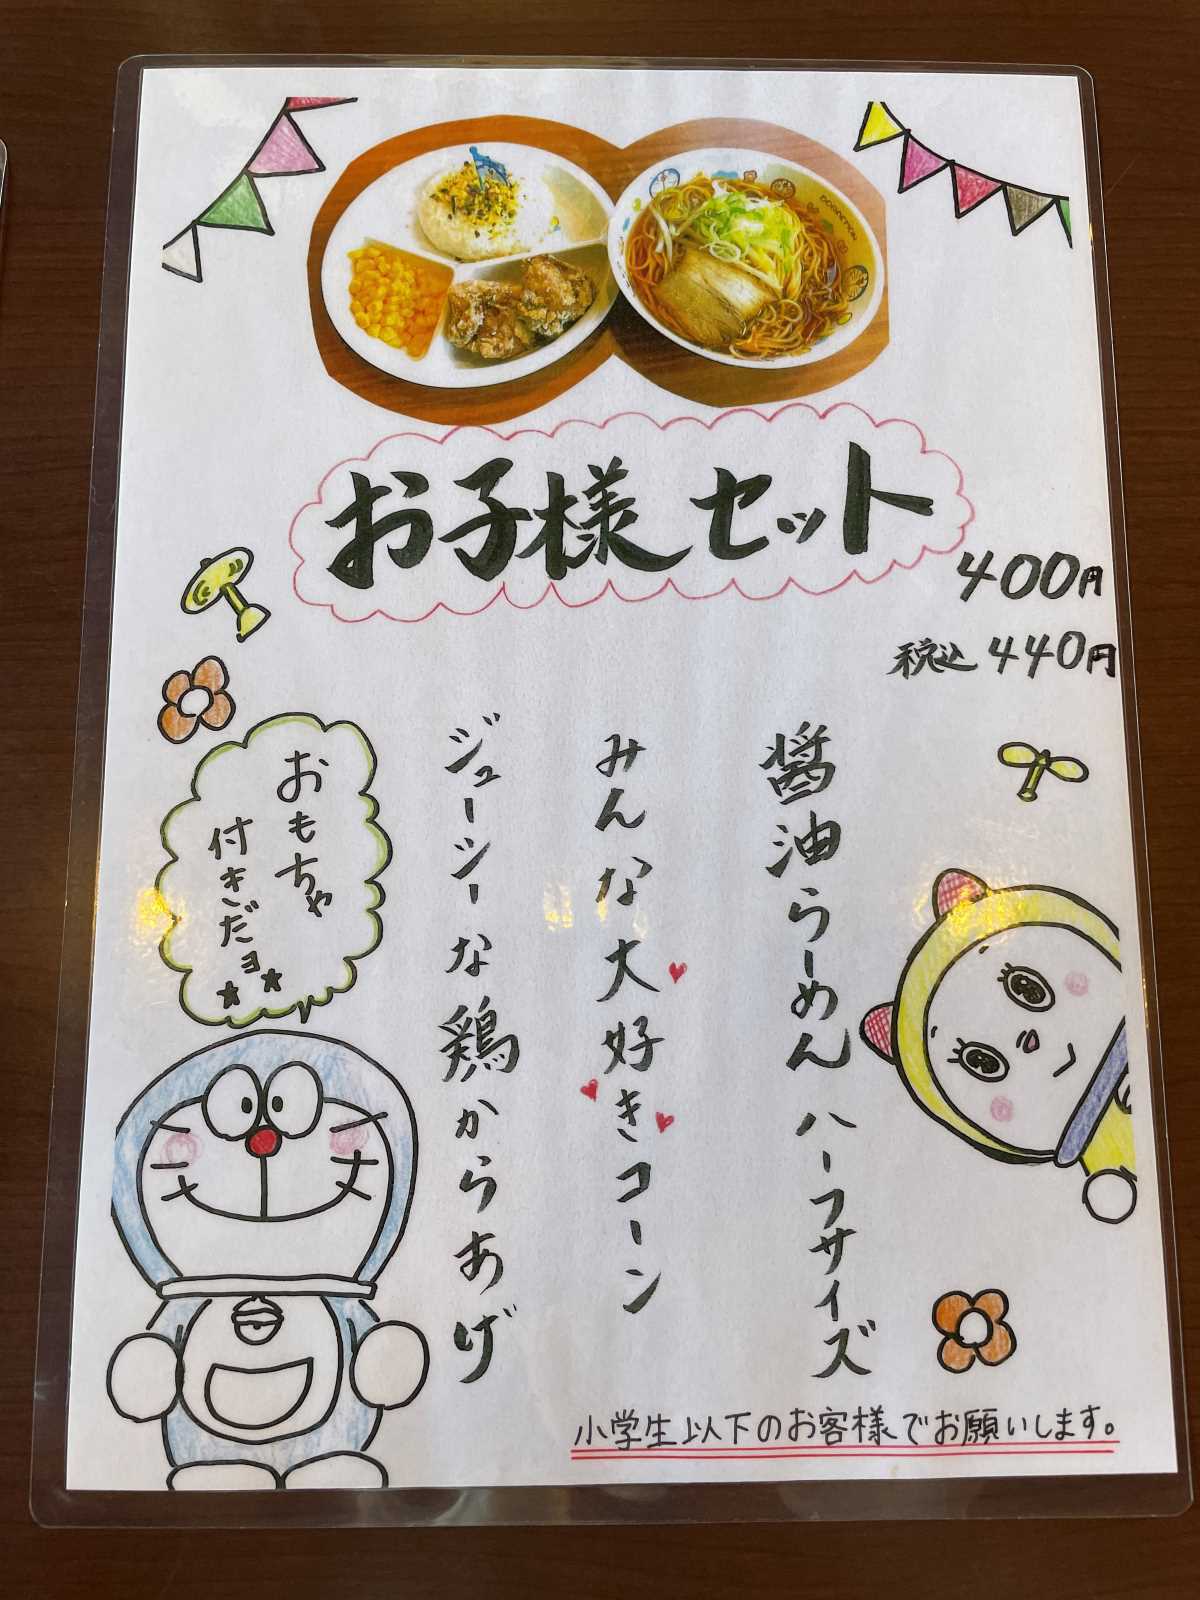 お子様セット
400円
税込 440円
醤油らーめん ハーフサイズ
みんな大好きコーン
ジューシーな鶏からあげ
おもちゃ
付きだョ
小学生以下のお客様でお願いします。